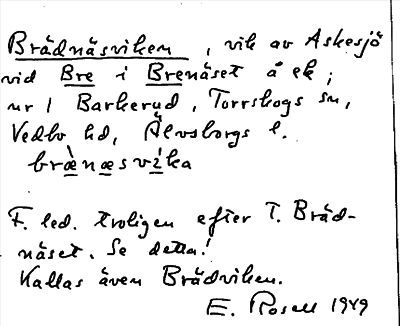 Brädnäsviken, vik av Askesjö
vid Bre i Brenäset å ek;
nr 1 Barkerud, Torrskogs sn,
Vedbo hd, Älvsborgs l.
brænæsvika
F. led. troligen efter T. Bräd-
näset. Se detta!
Kallas även Brädviken.
E. Rosell 1949